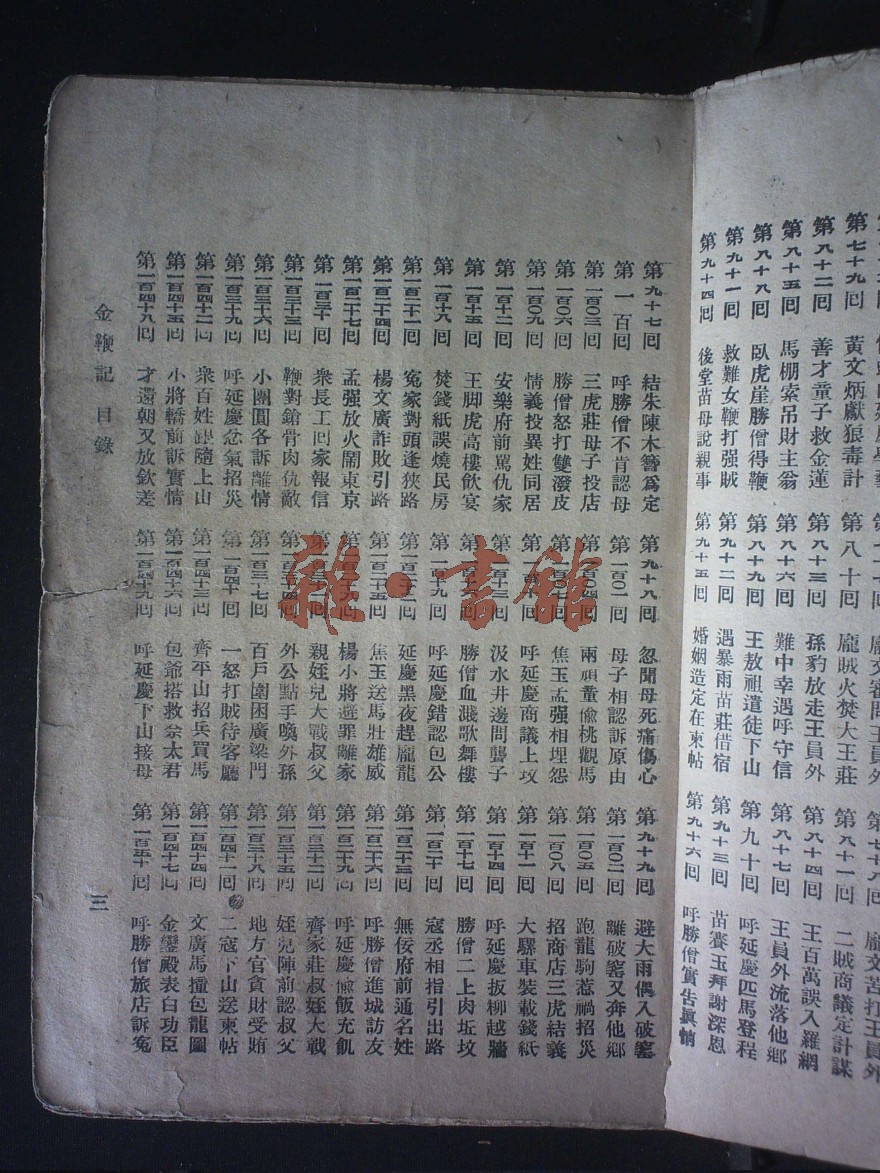 龐文審問王員外 龐文苦打王員外
第七十九回 黃文炳獻狼毒計 第八十回 龐賊火焚大王莊 第八十一回 二賊商議定計謀
第八十二回 善才童子救金蓮 第八十三回 孫豹放走王員外 第八十四回 王百萬誤入羅網
第八十五回 馬棚索吊財主翁 第八十六回 難中幸遇呼守信 第八十七回 王員外流落他鄉
第八十八回 臥虎崖勝僧得鞭 第八十九回 王敖祖遣徒下山 第九十回 呼延慶匹馬登程
第九十一回 救難女鞭打强賊 第九十二回 遇暴雨苗莊借宿 第九十三回 苗賽玉拜謝深恩
第九十四回 後堂苗母說親事 第九十五回 婚姻造定在柬帖 第九十六回 呼勝僧實告眞情
第九十七回 結朱陳木簪爲定 第九十八回 忽聞母死痛傷心 第九十九回 避大雨偶入破窰
第一百回 呼勝僧不肯認母 第一百〇一回 母子相認訴原由 第一百〇二回 離破窰又奔他鄉
第一百〇三回 三虎莊母子投店 第一百〇四回 兩頑童偷桃觀馬 第一百〇五回 跑龍駒惹禍招災
第一百〇六回 勝僧怒打雙潑皮 第一百〇七回 焦玉孟强相埋怨 第一百〇八回 招商店三虎結義
第一百〇九回 情義投異姓同居 第一百十回 呼延慶商議上坟 第一百十一回 大騾車裝載錢紙
第一百十二回 安樂府前罵仇家 第一百十三回 汲水井邊問聾子 第一百十四回 呼延慶扳柳越牆
第一百十五回 王脚虎高樓飲宴 第一百十六回 勝僧血濺歌舞樓 第一百十七回 勝僧二上肉坵坟
第一百十八回 焚錢紙誤燒民房 第一百十九回 呼延慶錯認包公 第一百二十回 寇丞相指引出路
第一百二十一回 寃家對頭逢狹路 第一百二十二回 延慶黑夜趕龐龍 第一百二十三回 無佞府前通名姓
第一百二十四回 楊文廣詐敗引路 第一百二十五回 焦玉送馬壯雄威 第一百二十六回 呼勝僧進城訪友
第一百二十七回 孟强放火鬧東京 第一百二十八回 楊小將避罪離家 第一百二十九回 呼延慶偷飯充飢
第一百三十回 衆長工回家報信 第一百三十一回 親姪兒大戰叔父 第一百三十二回 齊家莊叔姪大戰
第一百三十三回 鞭對鎗骨肉仇敵 第一百三十四回 外公點手喚外孫 第一百三十五回 姪兒陣前認叔父
第一百三十六回 小團圓各訴離情 第一百三十七回 百戶圍困廣梁門 第一百三十八回 地方官貪財受賄
第一百三十九回 呼延慶忿氣招災 第一百四十回 一怒打賊待客廳 第一百四十一回 二寇下山送柬帖
第一百四十二回 衆百姓跟隨上山 第一百四十三回 齊平山招兵買馬 第一百四十四回 文廣馬撞包龍圖
第一百四十五回 小將轎前訴實情 第一百四十六回 包爺搭救佘太君 第一百四十七回 金鑾殿表白功臣
第一百四十八回 才還朝又放欽差 第一百四十九回 呼延慶下山接母 第一百五十回 呼勝僧旅店訴寃
金鞭記 目錄 三
雜·書館